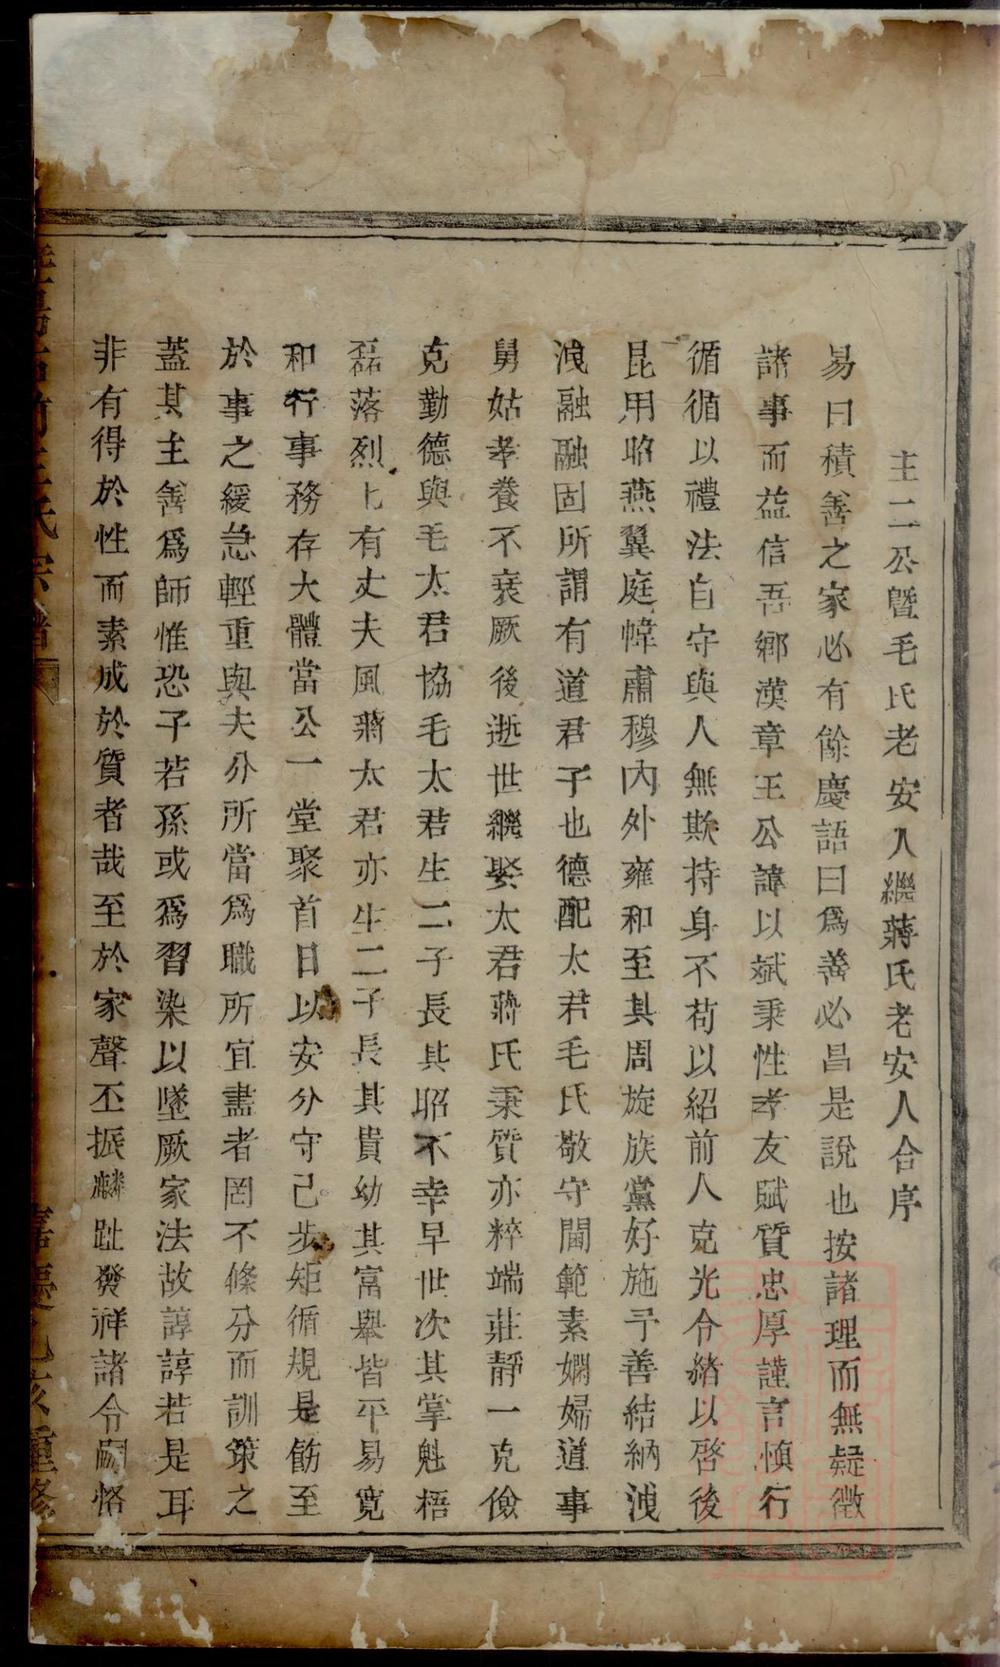 主二公曁毛氏老安人繼蔣氏老安人合序
易曰積善之家必有餘慶語曰爲善必昌是說也按諸理而無疑徵
諸事而益信吾鄉漢章王公諱以斌秉性孝友賦質忠厚謹言愼行
循循以禮法自守與人無欺持身不苟以紹前人克光令緒以啓後
昆用昭燕翼庭幃肅穆內外雍和至其周旋族黨好施予善結納洩
洩融融固所謂有道君子也德配太君毛氏敬守閫範素嫻婦道事
舅姑孝養不衰厥後逝世繼娶太君蔣氏秉質亦粹端莊靜一克儉
克勤德與毛太君協毛太君生二子長其昭不幸早世次其掌魁梧
磊落烈上有丈夫風蔣太君亦生二子長其貴幼其富舉皆平易寬
和行事務存大體當公一堂聚首日以安分守己步矩循規是飭至
於事之緩急輕重與夫分所當爲職所宜盡者罔不條分而訓策之
蓋其主善爲師惟恐子若孫或爲習染以墜厥家法故諄諄若是耳
非有得於性而素成於質者哉至於家聲丕振麟趾發祥諸令嗣恪
氏宗譜
重修